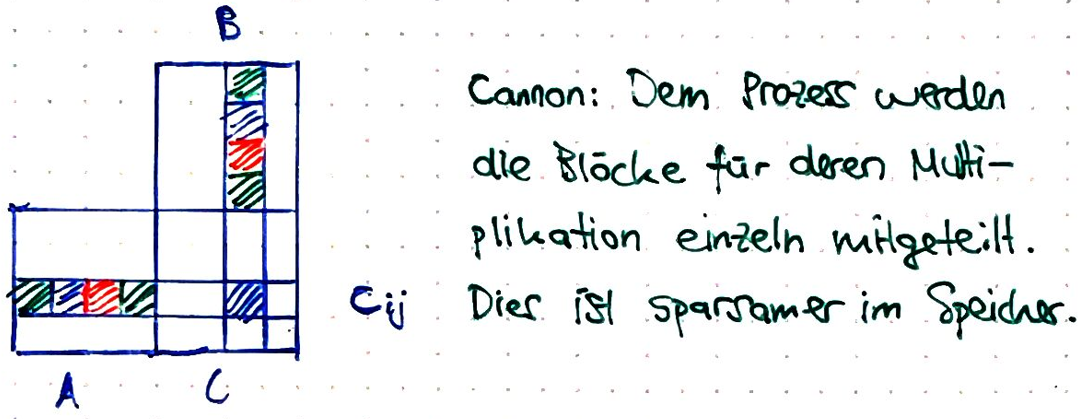 B
Cannon: Dem Prozess werden
die Blöcke für deren Multi-
plikation einzeln mitgeteilt.
Cij Dies ist sparsamer im Speicher.
A C